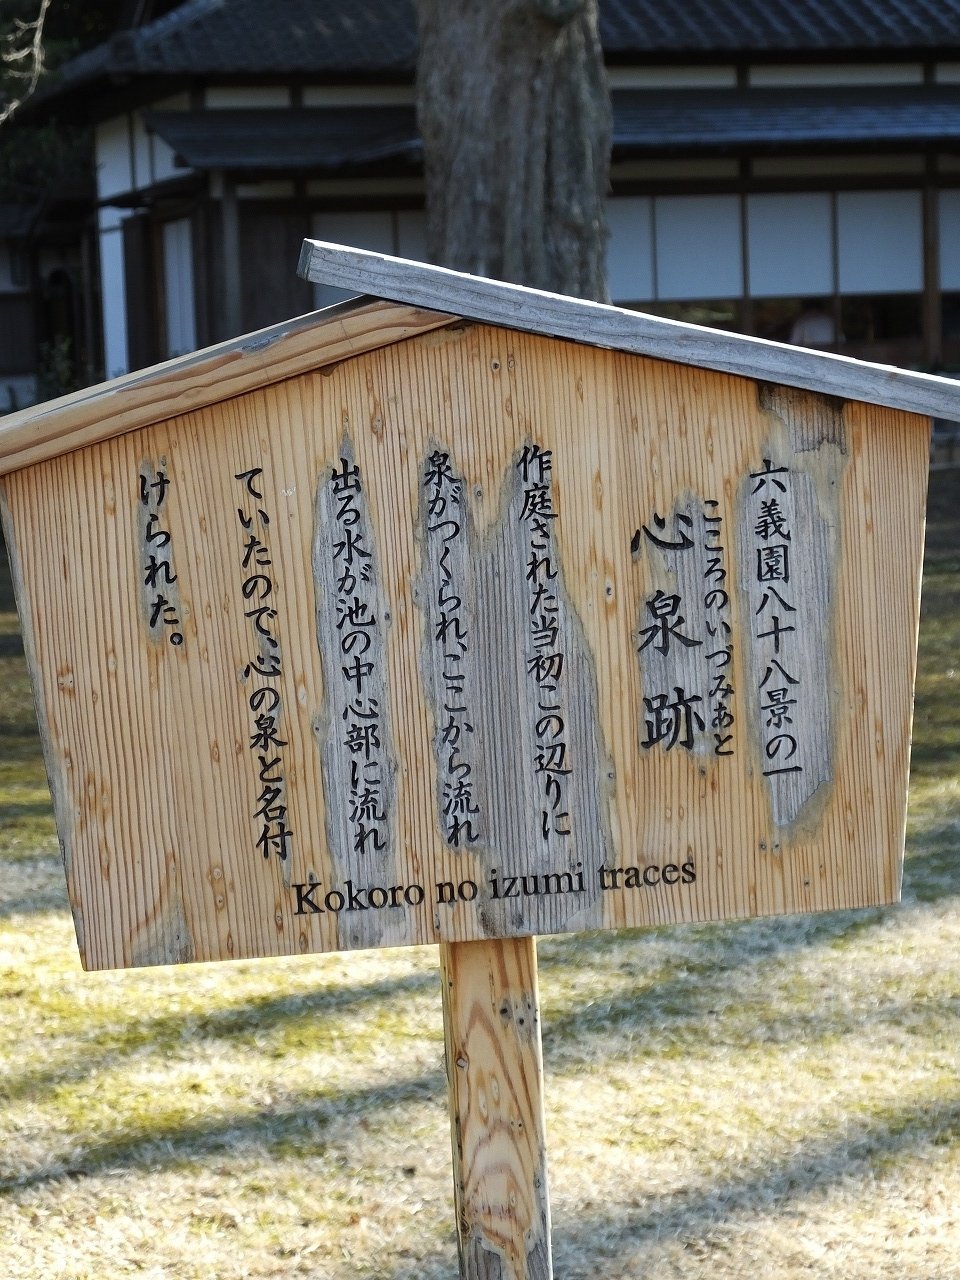 六義園八十八景の一
こころのいづみあと
心泉跡
作庭された当初この辺りに
泉がつくられ、ここから流れ
出る水が池の中心部に流れ
ていたので、心の泉と名付
けられた。
Kokoro no izumi traces